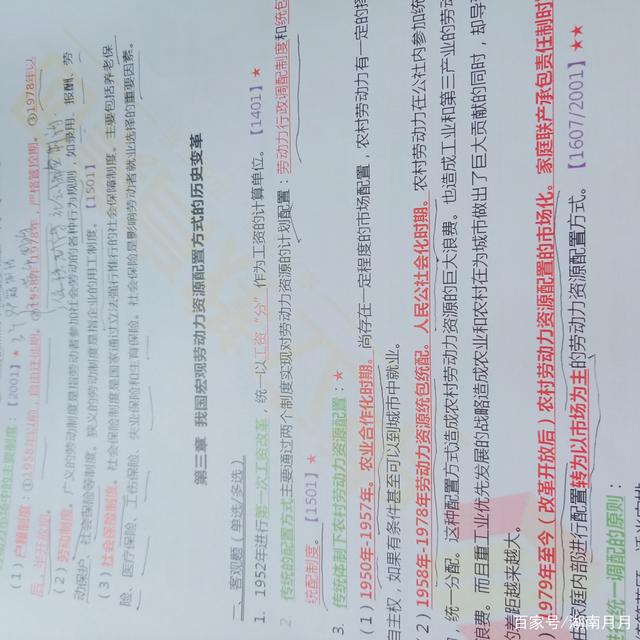 (1) 户籍制度:①1958年以前,自由迁徙期。②1958年-1978年,严格管控期。③1978年以
后,半开放期。
(2) 劳动制度。广义的劳动制度是指劳动者参加社会劳动的各种行为规则,如录用、报酬、劳
动保护、社会保险等制度。狭义的劳动制度是指企业的用工制度。【1501】
(3) 社会保险制度。社会保险制度是国家通过立法强行推行的社会保障制度。主要包括养老保
险、医疗保险、工伤保险、失业保险和生育保险。社会保险是影响劳动者就业选择的重要因素。
第三章 我国宏观劳动力资源配置方式的历史变革
一、客观题(单选/多选)
1. 1952年进行第一次工资改革,统一以工资“分”作为工资的计算单位。【1401】★
2. 传统的配置方式主要通过两个制度实现对劳动力资源的计划配置:劳动力行政调配制度和统包
统配制度。【1501】★
3. 传统体制下农村劳动力资源配置:★
(1) 1950年-1957年。农业合作化时期。尚存在一定程度的市场配置,农村劳动力有一定的择
自主权,如果有条件甚至可以到城市中就业。
(2) 1958年-1978年劳动力资源统包统配。人民公社会化时期。农村劳动力在公社内参加统
,统一分配。这种配置方式造成农村劳动力资源的巨大浪费。也造成工业和第三产业的劳动
浪费。而且重工业优先发展的战略造成农业和农村在为城市做出了巨大贡献的同时,却导
差距越来越大。
1979年至今(改革开放后)农村劳动力资源配置的市场化。家庭联产承包责任制时
家庭内部进行配置转为以市场为主的劳动力资源配置方式。【1607/2001】★★
统一调配的原则:
百家号/湖南月月